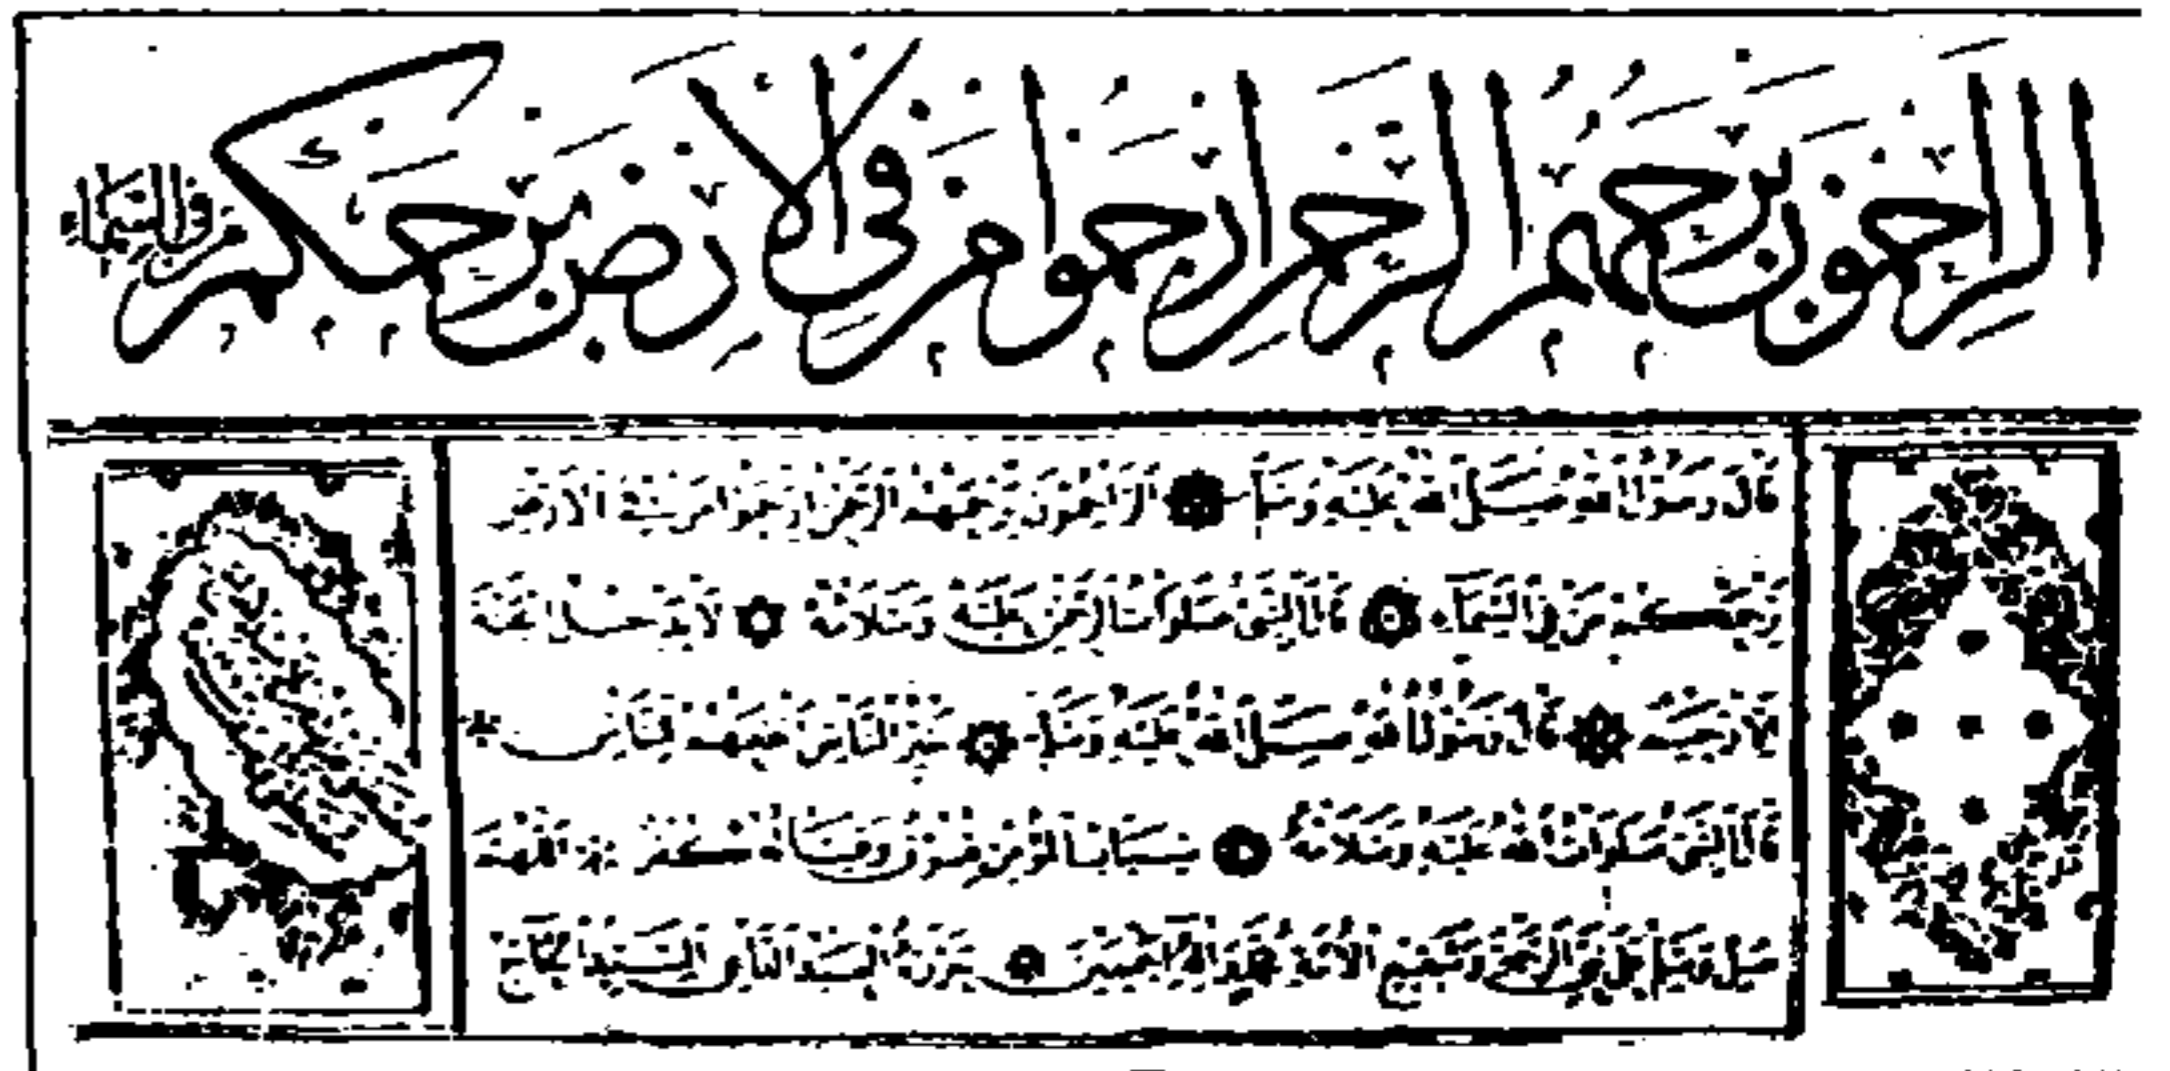 الراحمون يرحمهم الرحمن ارحموا من في الارض يرحمكم من في السماء
قال رسول الله صلى الله عليه وسلم الراحمون يرحمهم الرحمن ارحموا من في الارض
يرحمكم من في السماء قال النبي صلوات الرحمن عليه وسلامه لا يدخل الجنة
الا رحيم قال رسول الله صلى الله عليه وسلم خير الناس انفعهم للناس
قال النبي صلوات الله عليه وسلامه سباب المؤمن فسوق وقتاله كفر اللهم
صل وسلم على نبي الرحمة وشفيع الامة محمد وآله اجمعين حرره العبد السيد الحاج